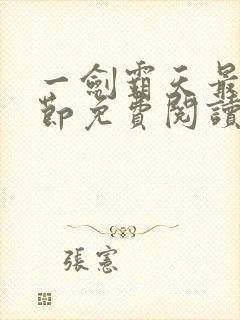 一劍霸天最
節免費閱讀
張憲